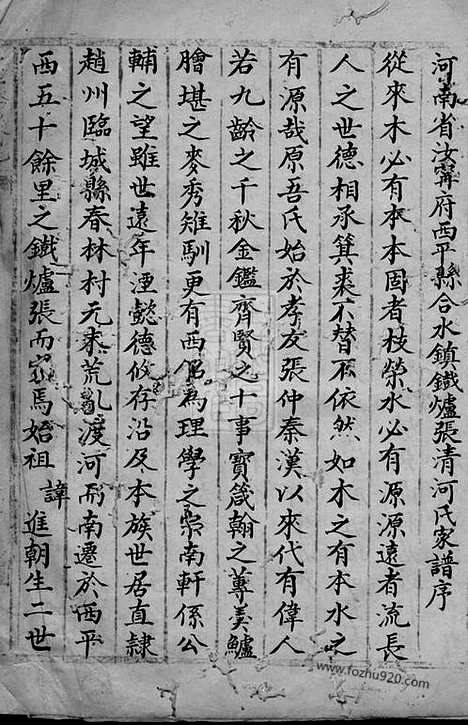 河南省汝寧府西平縣合水鎮鐵爐張清河氏家譜序
從來木必有本本固者枝榮水必有源源遠者流長
人之世德相承箕裘不替不依然如木之有本水之
有源哉原吾氏始於孝友張仲秦漢以來代有偉人
若九齡之千秋金鑑齊賢之十事寶箴翰之蓴羹鱸
膾堪之麥秀雉馴更有西銘為理學之宗南軒係公
輔之望雖世遠年湮懿德攸存沿及本族世居直隸
趙州臨城縣春林村元末荒亂渡河而南遷於西平
西五十餘里之鐵爐張而家焉始祖 諱 進朝生二世
www.fozhu920.com